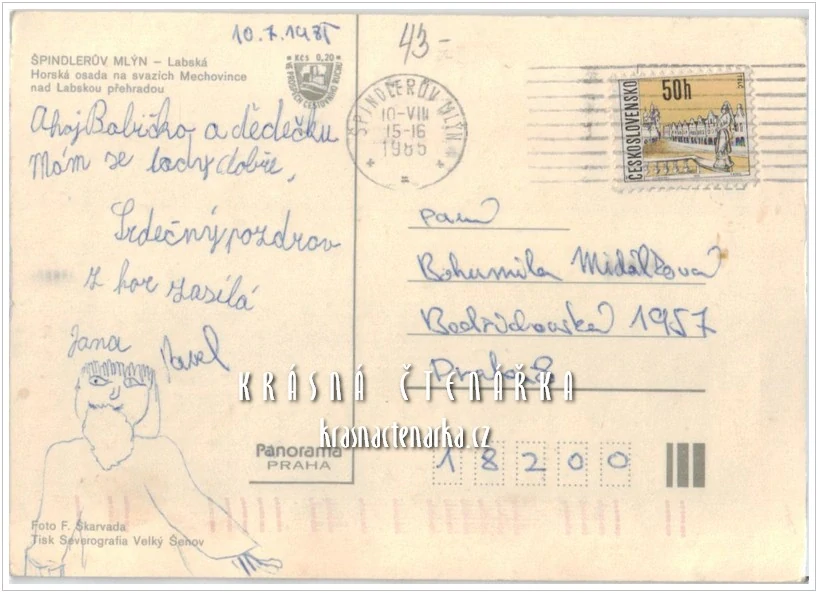 10.7.1985
43-
ŠPINDLERŮV MLÝN – Labská
Horská osada na svazích Mechovince
nad Labskou přehradou
Kčs 0,20
Ahoj Babičko a dědečku
Mám se tady dobře,
Srdečný pozdrav
z hor zasílá
Jana
Pavel
ŠPINDLERŮV MLÝN
10-VII
15-16
1985
ČESKOSLOVENSKO
50h
TELČ
paní
Bohumila
1957
Praha 8
18200
KRÁSNÁ ČTENÁŘKA
krasnactenarka.cz
Panorama
PRAHA
Foto F. Škarvada
Tisk Severografia Velký Šenov